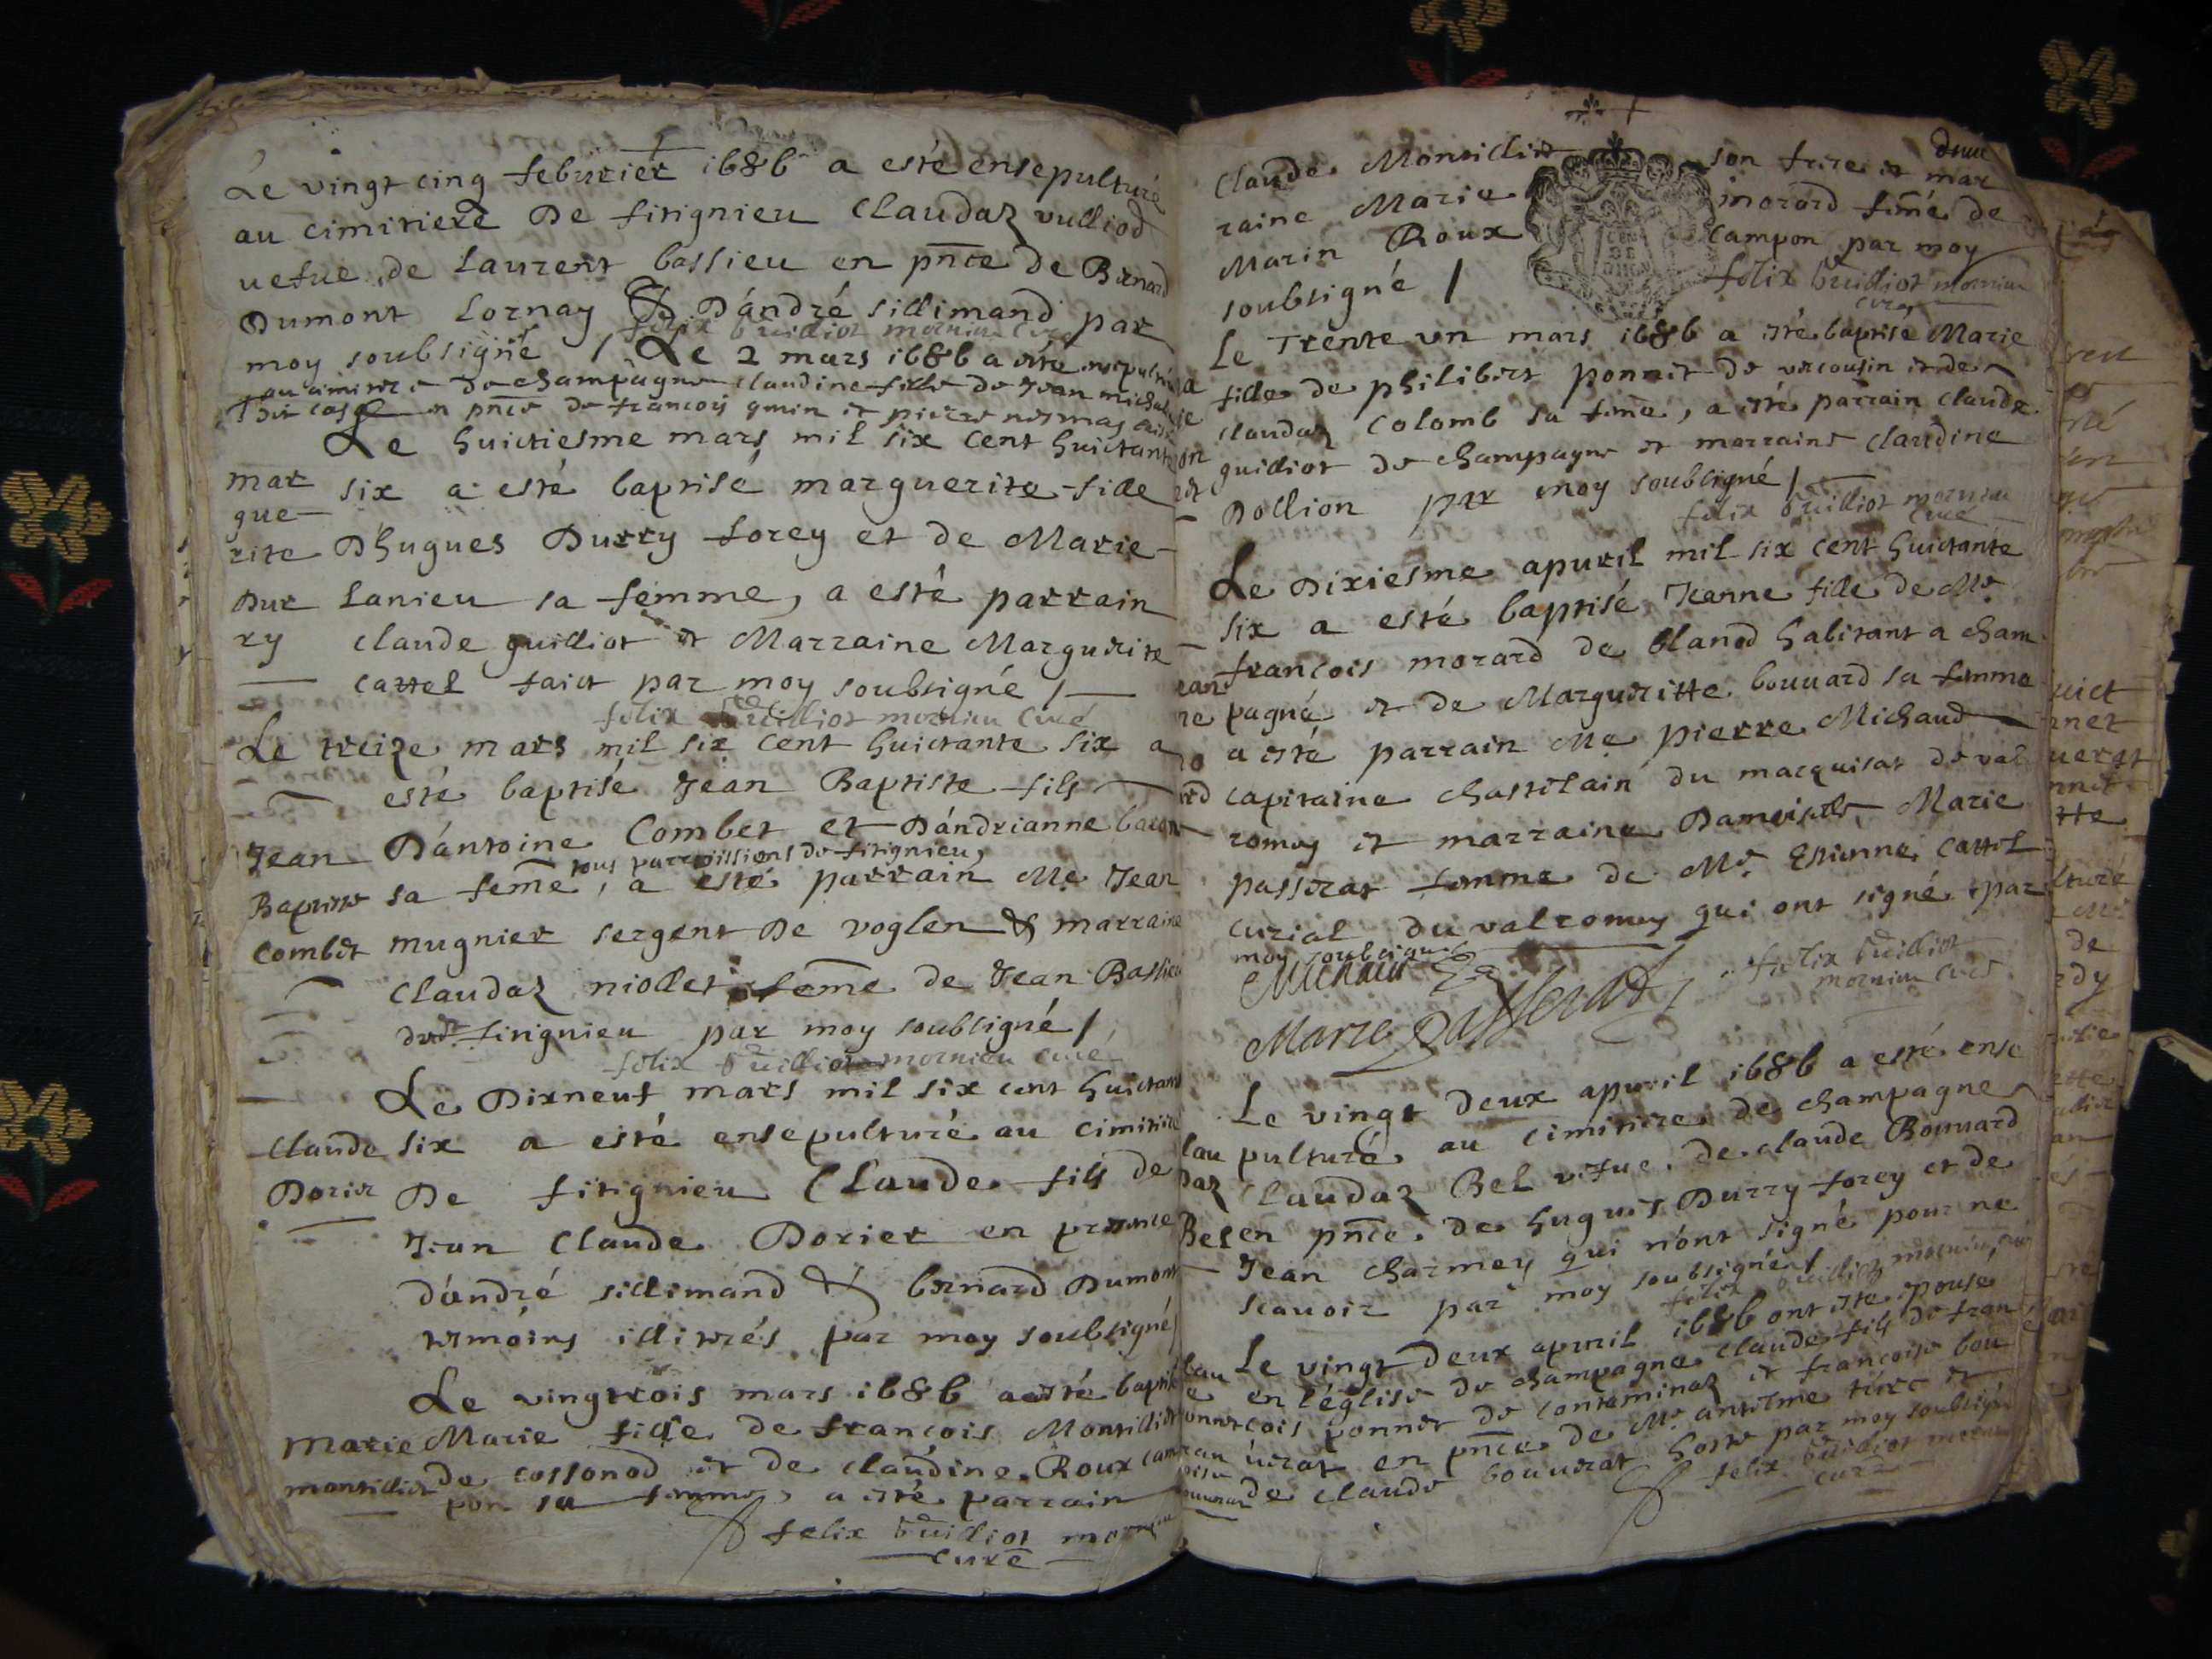 Le vingt cinq feburier 1686 a esté ensepulturé
au cimitiere De fitignieu Claudaz vulliod
uefue de Laurent bassieu en pnce de Bernard
Dumont Lornay & D'andré sillimand par
moy soubsigné / felix builliot mornieu curé
Le 2 mars 1686 a esté ensepulturé
au cimitiere de champagne claudine fille de Jean michel
en pnce de francois et pierre
Le huictiesme mars mil six cent huictante
mar six a esté baptisé marguerite fille
gue
rite D'hugues Durry forey et de Marie
Dur Lanieu sa femme, a esté parrain
ry claude guilliot et Marraine Marguerite
cattel faict par moy soubsigné /
felix builliot mornieu curé
Le treize mars mil six cent huictante six a
esté baptisé Jean Baptiste fils
Jean D'antoine Combet et D'andrianne
tous parroissiens de fitignieu,
Baptiste sa feme, a esté parrain Me Jean
Combet mugnier sergent De voglen & marraine
Claudaz niollet feme de Jean Bassieu
dud. fitignieu par moy soubsigné /
felix builliot mornieu curé
Le Dixneuf mars mil six cent huictante
Claude six a esté ensepulturé au cimitiere
Dorier De fitignieu Claude fils de
Jean Claude Dorier en presence
d'andré sillimand & bernard Dumont
temoins illitrés par moy soubsigné /
Le vingtrois mars 1686 a esté baptisé
Marie Marie fille de francois Montilliet
montilliet de cossonod et de claudine Roux cam
pon sa femme, a esté parrain
felix builliot mornieu
curé
Claude Montilliet son frere et mar
raine Marie morard feme de
Marin Roux Campon par moy
soubsigné / felix builliot mornieu
curé
Le Trente un mars 1686 a esté baptisé Marie
fille de philibert ponnet de vercousin et de
claudaz Colomb sa feme, a esté parrain claude
guilliot de champagne et marraine claudine
Dollion par moy soubsigné /
felix builliot mornieu
curé
Le Dixiesme apuril mil six cent huictante
six a esté baptisé Jeanne fille de Mre
françois morard de blanod habitant a cham
pagne et de Margueritte bouuard sa femme
a esté parrain Me pierre Michaud
capitaine chastelain du marquisat de val
romey et marraine Damoiselle Marie
passerat femme de Mre Estienne Cattel
curial du valromey qui ont signé par
moy soubsigné
Michaud
felix builliot
mornieu curé
Marie Passerat
Le vingt deux apuril 1686 a esté ense
lau pulturé au cimitiere de champagne
daz Claudaz Bel vefue de claude Bouuard
Bel en pnce de hugues Durry forey et de
Jean charmey qui n'ont signé pour ne
scauoir par moy soubsigné /
felix builliot mornieu curé
Le vingt deux apuril 1686 ont esté epousé
en l'église de champagne claude fils de fran
cois ponnet de contaminaz et francoise bou
uerat en pnce de Mre antelme turc et
de claude bouuerat hoste par moy soubsigné
felix builliot mornieu
curé